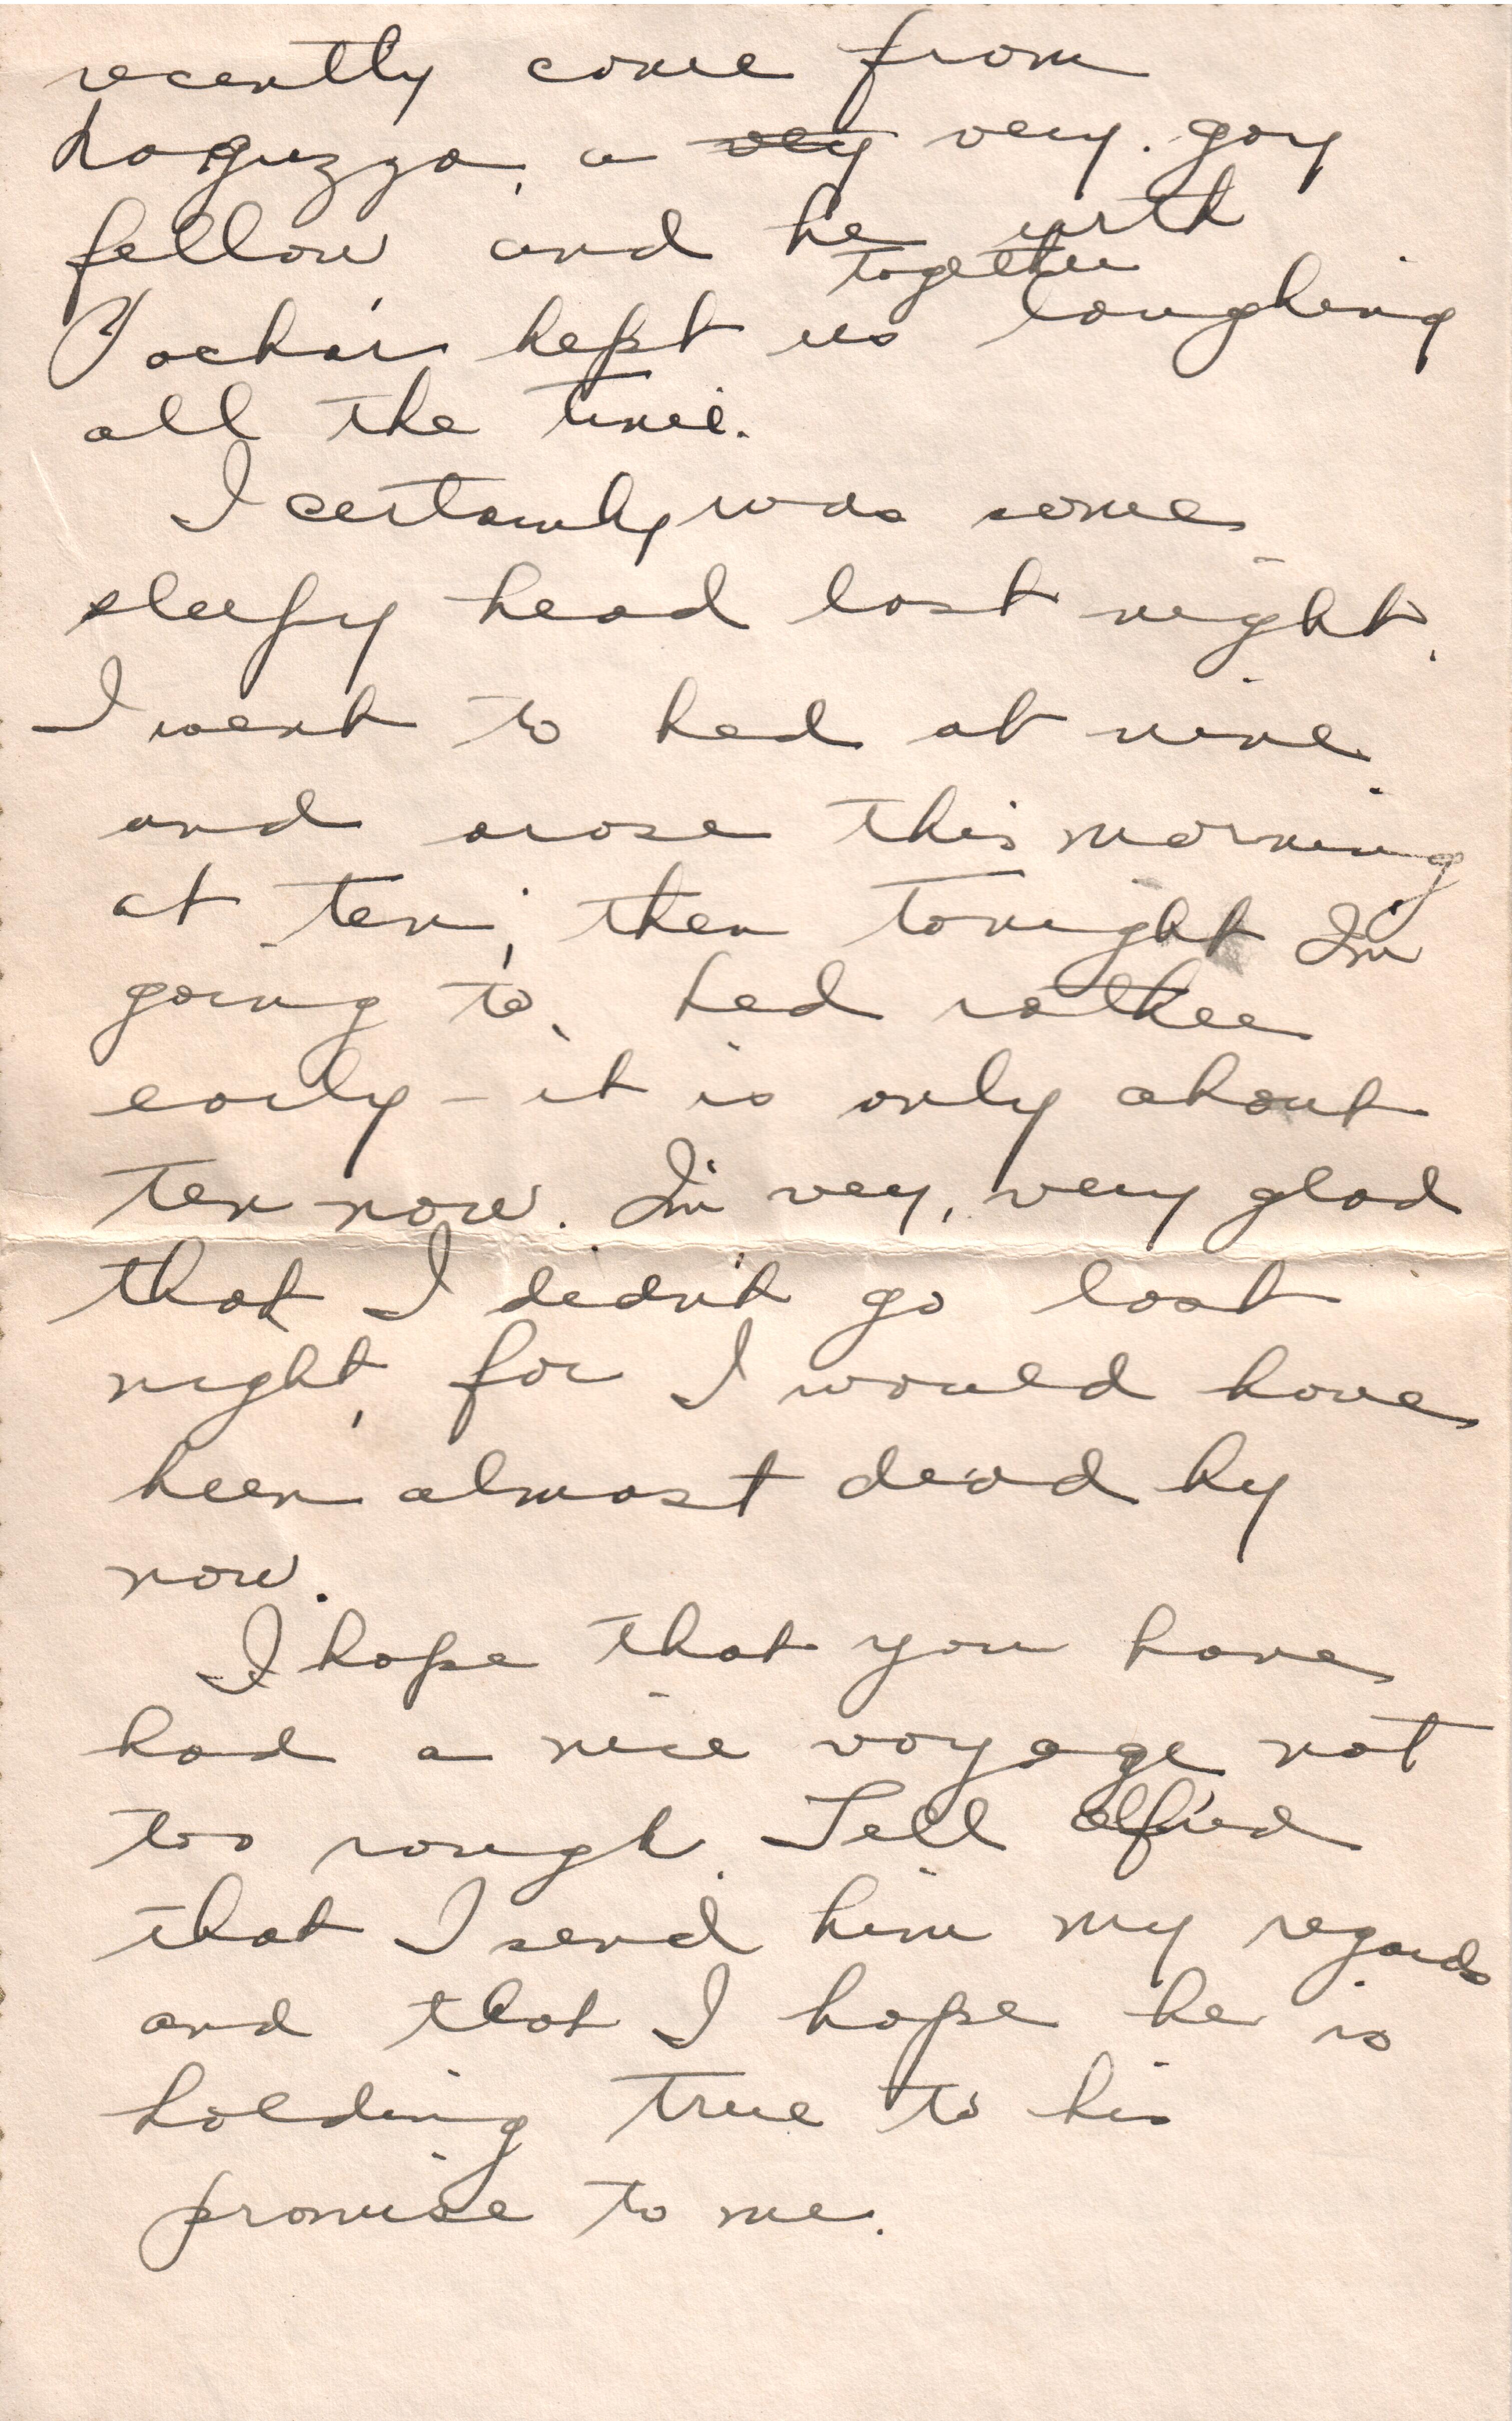 recently come from
a very very gay
fellow and he with
together
kept us laughing
all the time.
I certainly was some
sleepy head last night.
I went to bed at nine
and arose this morning
at ten, then tonight I'm
going to bed rather
early - it is only about
ten now. I'm very, very glad
that I didn't go last
night, for I would have
been almost dead by
now.
I hope that you have
had a nice voyage not
too rough. Tell Alfred
that I send him my regards
and that I hope he is
holding true to his
promise to me.